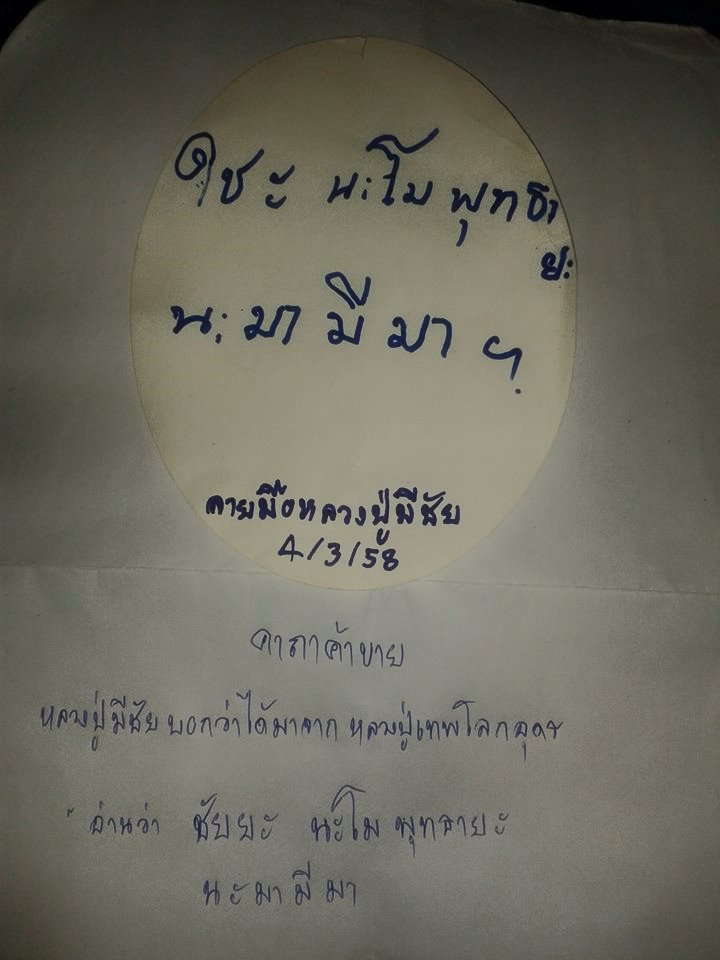 ไชยะ นะโม พุทธา
ยะ
นะ มา มี มา ฯ
ลายมือหลวงปู่มีชัย
4/3/58
คาถาค้าขาย
หลวงปู่มีชัย บอกว่าได้มาจาก หลวงปู่เทพโลกอุดร
" อ่านว่า ชัยยะ นะโม พุทธายะ
นะ มา มี มา